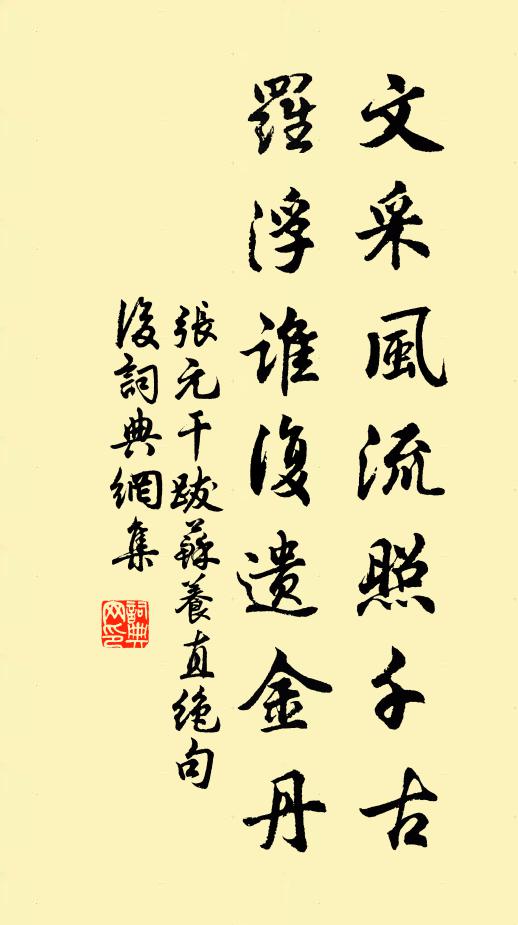 文采風流照千古
羅浮誰復遺金丹
張元干跋蘇養直絶句
後詞典網集
詞典
网印